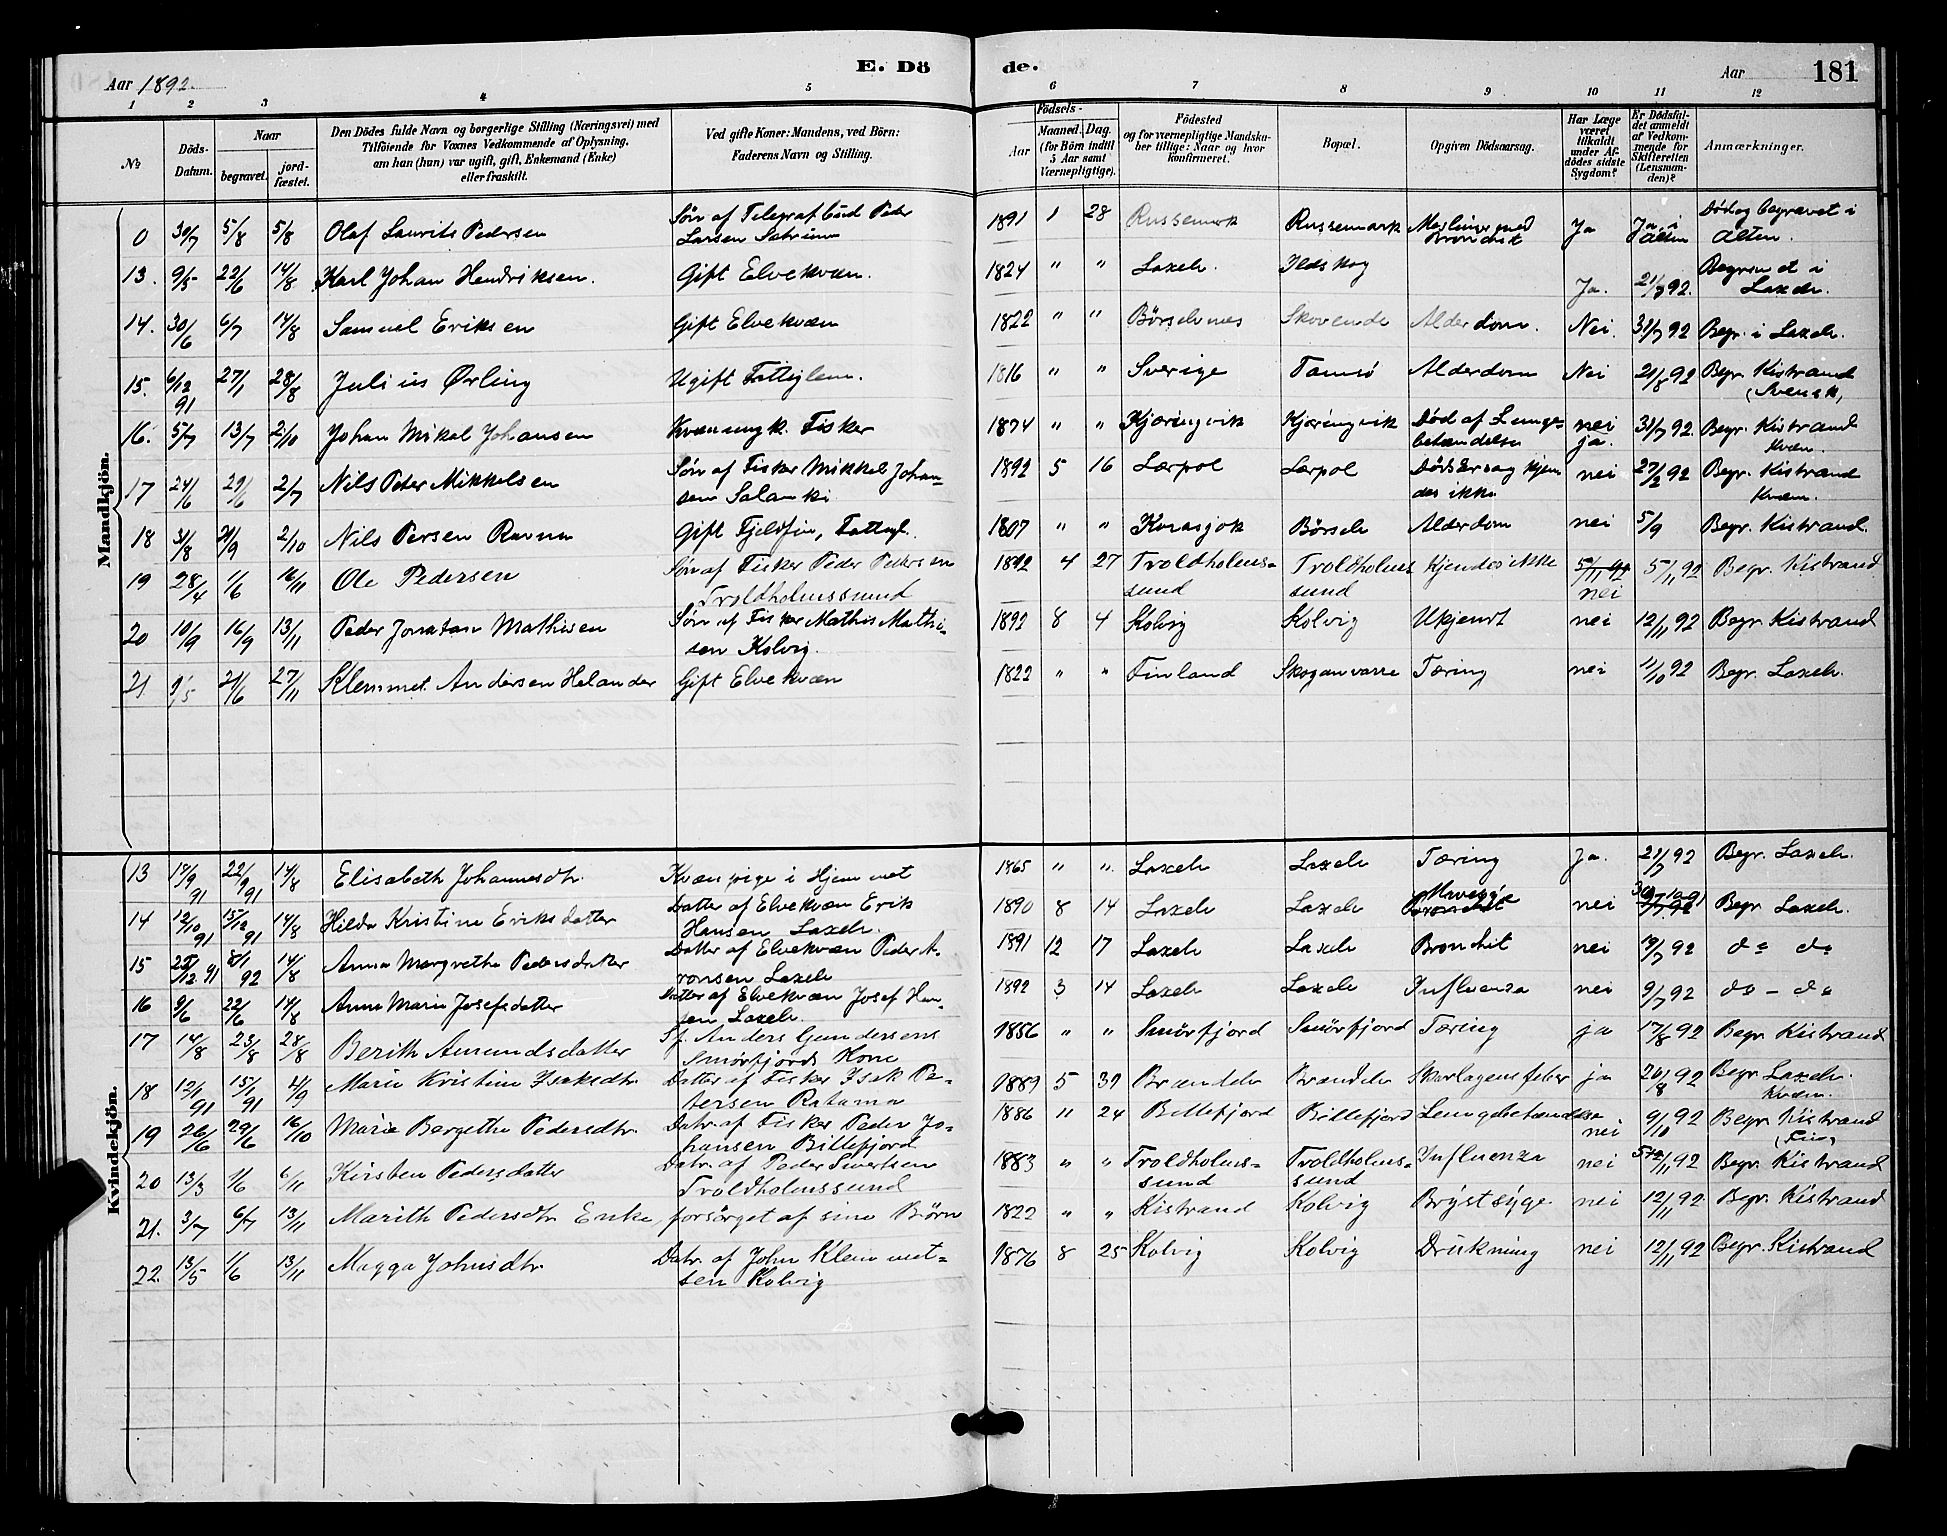 E. Dö de.
Aar 1892.
Aar 181
1 2 3 4 5 6 7 8 9 10 11 12
No
Döds-Datum.
Naar
begravet.
jord-fæstet.
Den Dödes fulde Navn og borgerlige Stilling (Næringsvei) med
Tilföiende for Voxnes Vedkommende af Oplysning,
om han (hun) var ugift, gift, Enkemand (Enke)
eller fraskilt.
Ved gifte Koner: Mandens, ved Börn:
Faderens Navn og Stilling.
Födsels-
Aar
Maaned. Dag.
(for Börn indtil
5 Aar samt
Værnepligtige).
Födested
og for værnepligtige Mandska-
ber tillige: Naar og hvor
konfirmeret.
Bopæl.
Opgiven Dödsaarsag.
Har Læge
været
tilkaldt
under Af-
dödes sidste
Sygdom?
Er Dödsfal-
det anmeldt
af Vedkom-
mende for
Skifteretten
(Lensman-
den)?
Anmærkninger.
Mandkjön.
0 30/7 5/8 5/8 Olaf Laurits Pedersen Søn af Telegrafbud Peder Larsen 1891 1 28 Russemark Russemark Meslinger med Bronchit Ja Ja, i Alten Död og begravet i Alten.
13. 9/5 22/6 14/8 Karl Johan Hendriksen. Gift Elvekvæn. 1824 " " Laxelv. Ildskog Ja. 21/7 92. Begravet i Laxelv.
14. 30/6 6/7 14/8 Samuel Eriksen Gift Elvekvæn 1822 " " Børselvnes Skovende Alderdom. Nei 31/7 92 Begr. i Laxelv.
15. 6/12 91 27/1 28/8 Julius Ørling Ugift Fattiglem. 1816 " " Sverige Tamsö Alderdom Nei 21/8 92 Begr. Kistrand (Svensk)
16. 5/7 13/7 2/10 Johan Mikal Johansen Kvænungk. Fisker 1874 " " Kjæringvik Kjæringvik Död af Lunge-betændelse nei ja. 31/7 92. Begr. Kistrand Kvæn.
17 24/6 29/6 2/7 Nils Peter Mikkelsen Søn af Fisker Mikkel Johan-sen Salanki 1892 5 16 Lærpol Lærpol Dödsårsag kjen des ikke nei 27/2 92 Begr. Kistrand Kvæn.
18 31/8 21/9 2/10 Nils Persen Ravna Gift Fjeldfin, Fattigl. 1807 " " Karasjok Börselv Alderdom nei 5/9 Begr. Kistrand.
19 28/4 1/6 16/11 Ole Pedersen Søn af Fisker Peder Pedersen Troldholmssund 1892 4 27 Troldholms-sund Troldholms sund Kjendes ikke 5/11 92 nei 5/11 92 Begr. Kistrand
20 10/9 16/9 13/11 Peder Jonatan Mathisen Søn af Fisker Mathis Mathi-sen Kolvig. 1892 8 4 Kolvig Kolvig Ukjendt nei 12/11 92 Begr. Kistrand
21. 9/5 21/6 27/11 Klemmet Andersen Helander Gift Elvekvæn 1822 " " Finland Skoganvarre Tæring nei 1/10 92 Begr. Laxelv.
Kvindekjön.
13 17/9 91 22/9 91 14/8 Elisabeth Johannesdtr. Kvænpige i Hjemmet 1865 " " Laxelv Laxelv Tæring Ja. 21/7 92 Begr. Laxelv.
14 12/10 91 15/12 91 14/8 Hilda Kristine Eriksdatter Datter af Elvekvæn Erik Hansen Laxelv. 1890 8 14 Laxelv Laxelv Mavesyge Bronchit nei Begr Laxelv.
15 25/12. 91 8/1 92 14/8 Anna Margrethe Pedersdatter Datter af Elvekvæn Peder A-ronsen Laxelv 1891 12 17 Laxelv Laxelv Bronchit nei 19/7 92 do do
16 9/6 22/6 14/8 Anna Marie Josefsdatter Datter af Elvekvæn Josef Han-sen Laxelv. 1892 3 14 Laxelv Laxelv Influenza nei 9/7 92 do - do
17 14/8 23/8 28/8 Berith Amundsdatter Sf. Anders Gundersens Smörfjords Kone 1856 " " Smörfjord Smörfjord Tæring ja 17/8 92 Begr. Kistrand
18 12/1 91 15/1 91 4/9 Marie Kristine Isaksdtr. Datter af Fisker Isak Pe-tersen Ratama 1889 5 30 Brændelv Brændelv Skarlagensfeber ja 20/8 92 Begr. Laxelv. Kvæn.
19 26/6 29/6 16/10 Marie Bergethe Pedersdtr. Datr. af Fisker Peder Jo-hansen Billefjord 1886 11 24 Billefjord Billefjord Lungebetændelse nei 9/10 92 Begr. Kistrand (Fin)
20 13/3 1/6 6/11 Kirsten Pedersdatter Datr. af Peder Sivertsen Troldholmssund 1883 " " Troldholms-sund Troldholms-sund Influenza nei 5/11 92 Begr. Kistrand
21. 3/7 6/7 13/11 Marith Pedersdtr Enke, forsörget af sine Börn 1822 " " Kistrand Kolvig Brystsyge nei 12/11 92 Begr. Kistrand
22. 13/5 1/6 13/11 Magga Johnsdtr. Datr. af John Klemmet-sen Kolvig 1876 8 25 Kolvig Kolvig Drukning nei 12/11 92 Begr. Kistrand